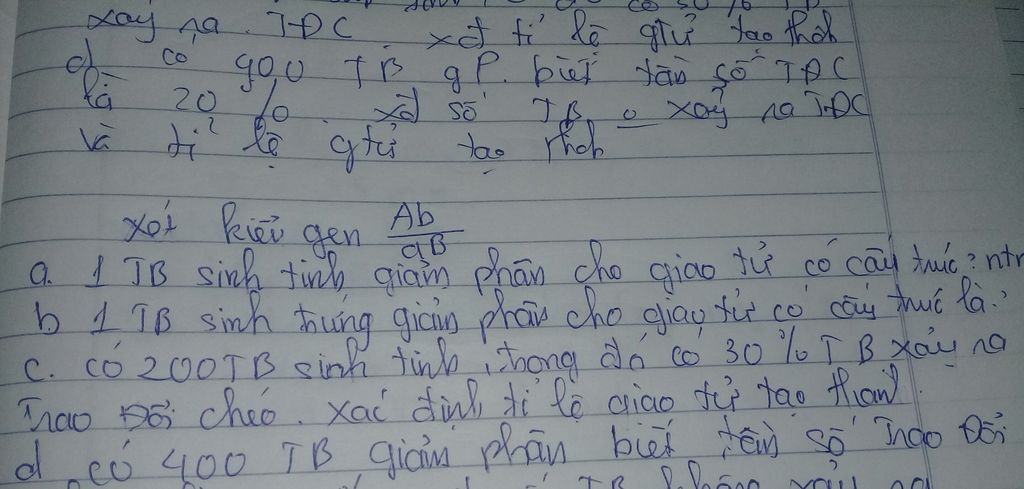 xảy ra TĐC xđ tỉ lệ gtử tạo thành
d có 400 TB gP. biết tần số TĐC
là 20% xđ số TB o xảy ra TĐC
và tỉ lệ gtử tạo thành
xét kiểu gen Ab/aB
a. 1 TB sinh tinh giảm phân cho giao tử có cấu trúc? ntn
b 1 TB sinh trứng giảm phân cho giao tử có cấu thúc là?
c. có 200 TB sinh tinh, trong đó có 30% TB xảy ra
Trao Đổi chéo. xác định tỉ lệ giao tử tạo thành
d có 400 TB giảm phân biết tần số Trao Đổi
TB không xảy ra